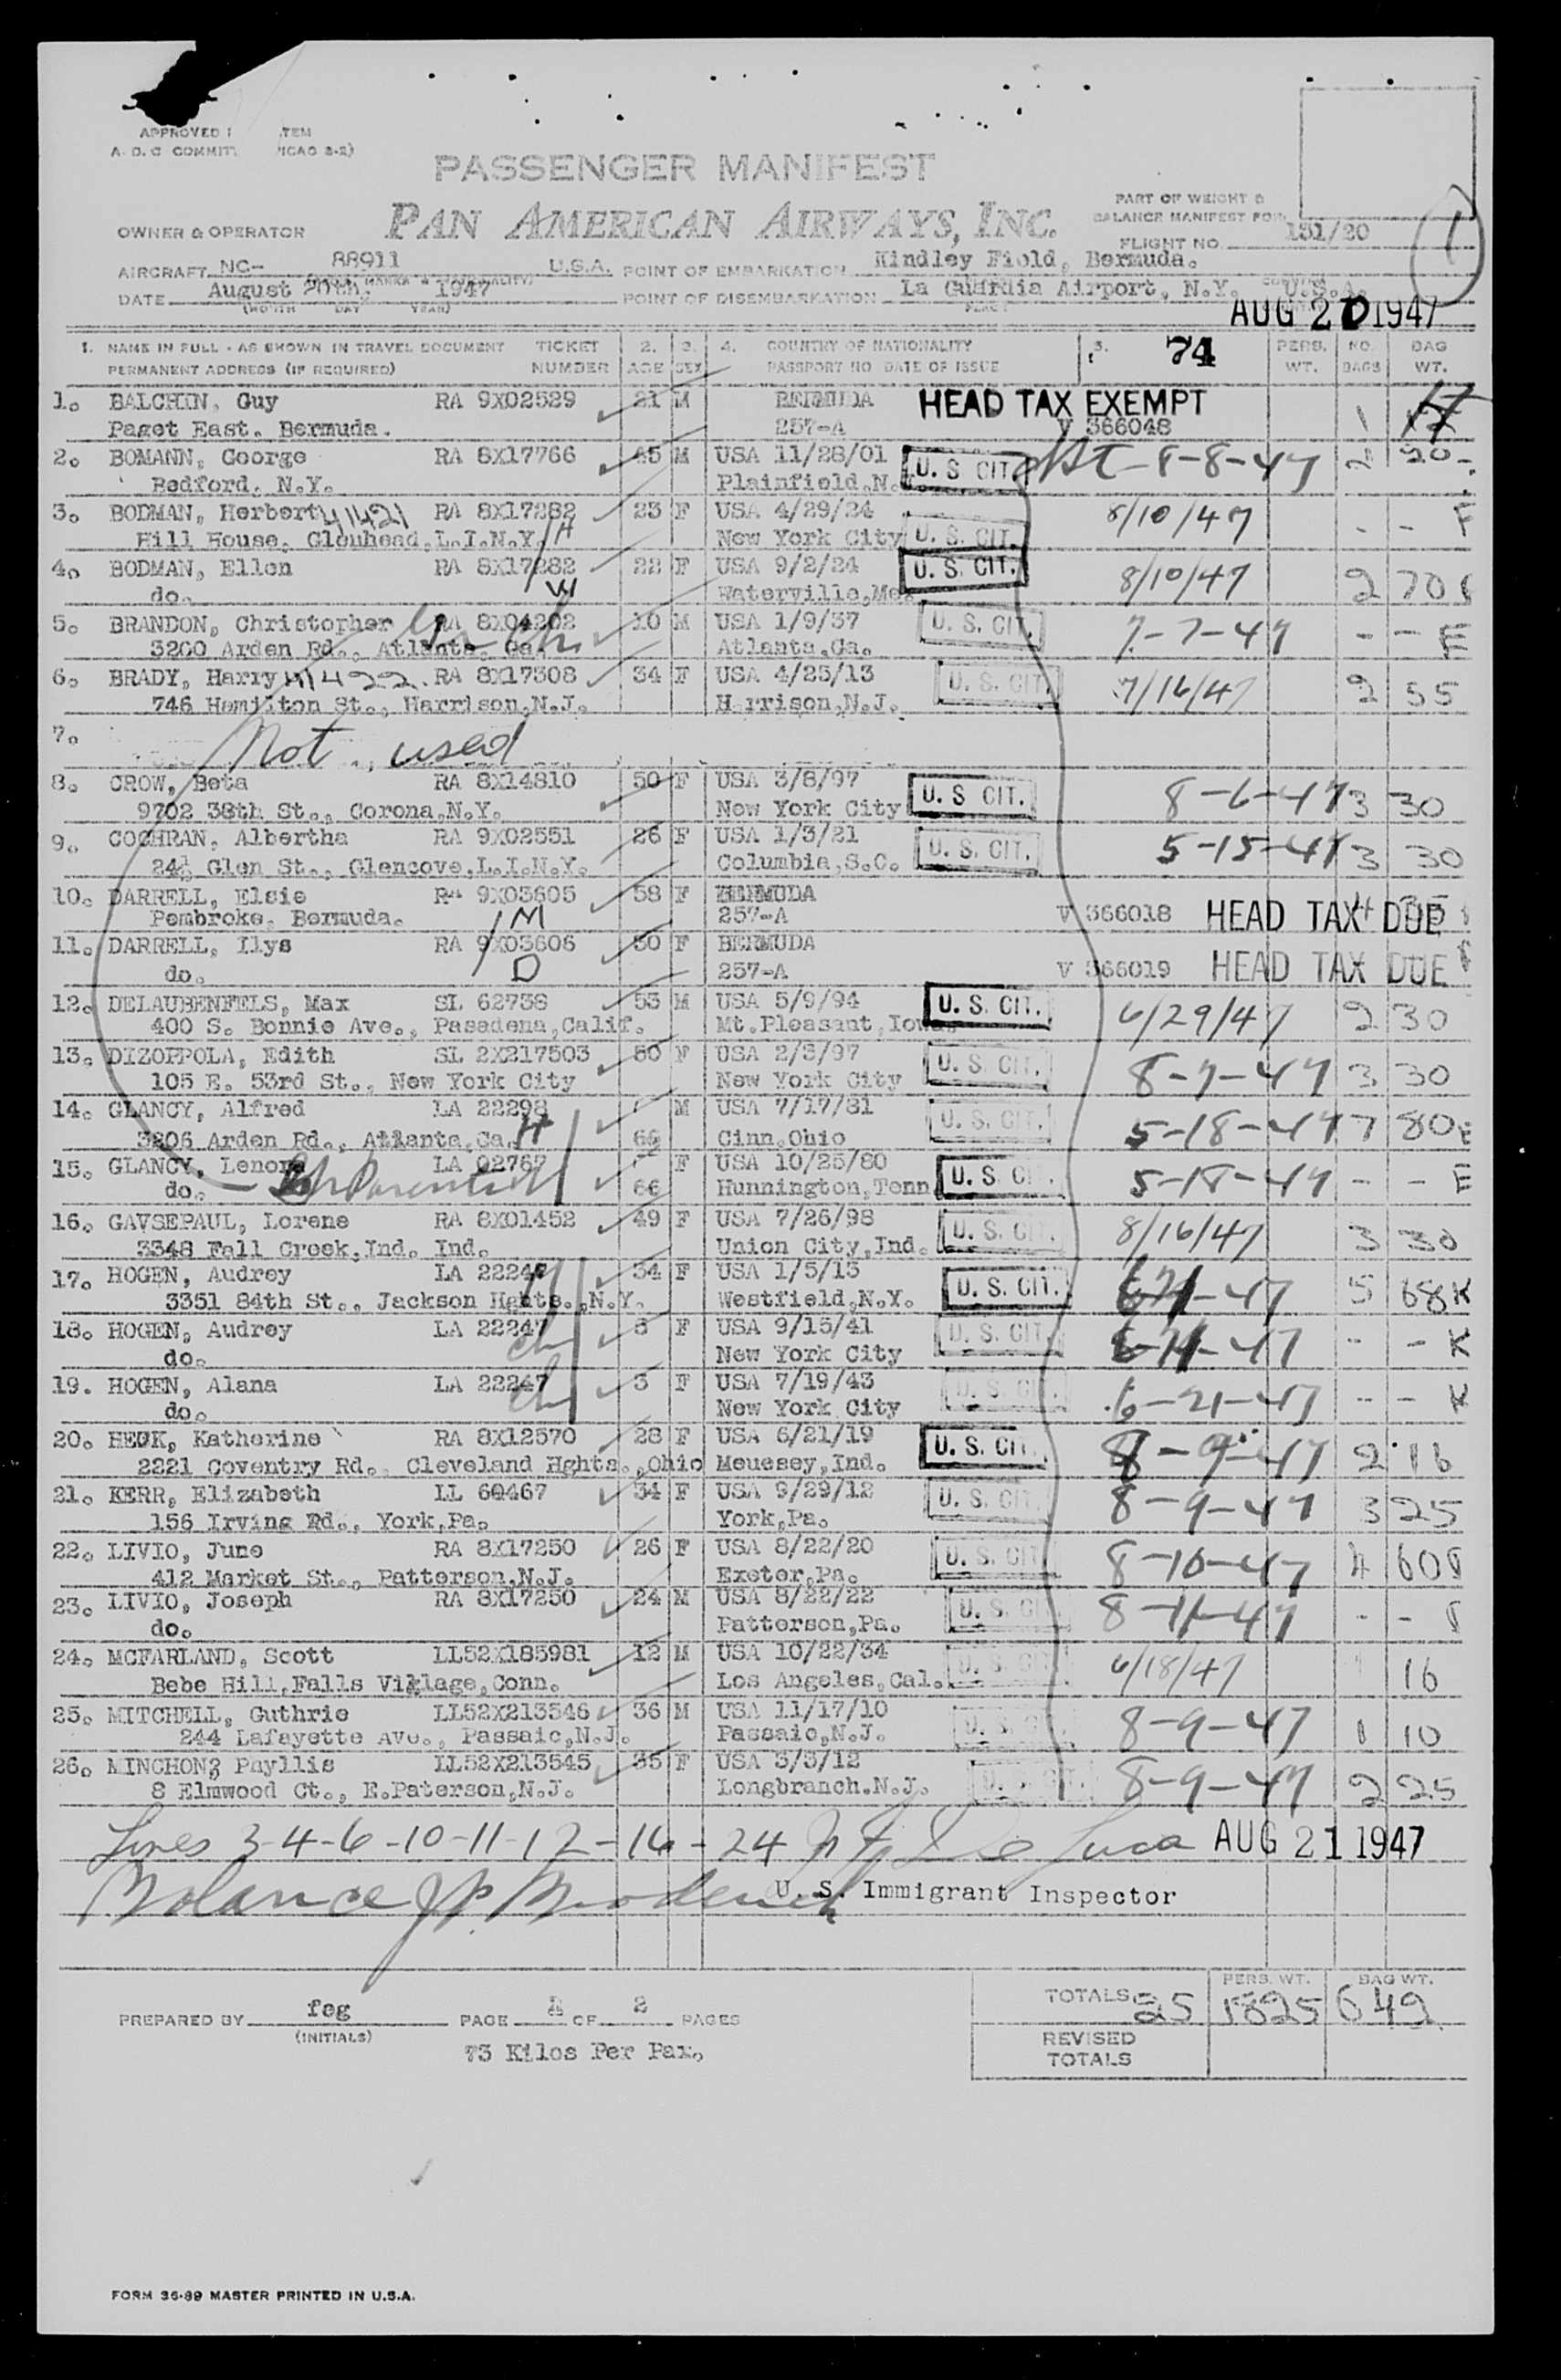 APPROVED TEM
A. D. C COMMIT (ICAO 3-2)
PASSENGER MANIFEST
PAN AMERICAN AIRWAYS, INC.
OWNER & OPERATOR
PART OF WEIGHT &
BALANCE MANIFEST FOR
FLIGHT NO. 131/20
1
AIRCRAFT NC- 88911 U.S.A. POINT OF EMBARKATION Kindley Field, Bermuda.
DATE August 20th, 1947 POINT OF DISEMBARKATION La Guardia Airport, N.Y. U.S.A.
(MONTH DAY YEAR) PLACE
AUG 20 1947
1. NAME IN FULL - AS SHOWN IN TRAVEL DOCUMENT TICKET 2. 3. 4. COUNTRY OF NATIONALITY 5. 74 PERS. NO. BAG
PERMANENT ADDRESS (IF REQUIRED) NUMBER AGE SEX PASSPORT NO DATE OF ISSUE WT. BAGS WT.
1. BALCHIN, Guy RA 9X02529 21 M BERMUDA HEAD TAX EXEMPT 1
Paget East. Bermuda. 257-A V 366048
2. BOMANN, George RA 8X17766 45 M USA 11/28/01 U. S CIT. 8-8-47 2 20
Bedford. N.Y. Plainfield, N.
3. BODMAN, Herbert 41421 RA 8X17282 23 F USA 4/29/24 8/10/47 - - F
Hill House, Glenhead, L.I.N.Y. H New York City U. S. CIT.
4. BODMAN, Ellen RA 8X17282 22 F USA 9/2/24 U. S. CIT. 8/10/47 2 70
do. W Waterville, Me.
5. BRANDON, Christopher RA 8X04202 10 M USA 1/9/37 U. S. CIT. 7-7-47 - - E
3200 Arden Rd., Atlanta, Ga. Atlanta, Ga.
6. BRADY, Harry 41422 RA 8X17308 34 F USA 4/25/13 U. S. CIT. 7/16/47 2 55
746 Hamilton St., Harrison, N.J. Harrison, N.J.
7. Not used
8. CROW, Beta RA 8X14810 50 F USA 3/8/97 8-6-47 3 30
9702 38th St., Corona, N.Y. New York City U. S CIT.
9. COCHRAN, Albertha RA 9X02551 26 F USA 1/3/21 5-15-47 3 30
24½ Glen St., Glencove, L.I.N.Y. Columbia, S.C. U. S. CIT.
10. DARRELL, Elsie RA 9X03605 58 F BERMUDA 4 35
Pembroke, Bermuda. M 257-A V 366018 HEAD TAX DUE
11. DARRELL, Ilys RA 9X03606 50 F BERMUDA
do. D 257-A V 366019 HEAD TAX DUE
12. DELAUBENFELS, Max SL 62738 53 M USA 5/9/94 U. S. CIT. 6/29/47 2 30
400 S. Bonnie Ave., Pasadena, Calif. Mt. Pleasant, Iowa
13. DIZOPPOLA, Edith SL 2X217503 50 F USA 2/3/97 U. S. CIT. 8-7-47 3 30
105 E. 53rd St., New York City New York City
14. GLANCY, Alfred LA 22298 M USA 7/17/81 U. S. CIT. 5-18-47 7 80 E
3206 Arden Rd., Atlanta, Ga. H 66 Cinn. Ohio
15. GLANCY, Lenora LA 02767 F USA 10/25/80 U. S. CIT. 5-18-47 - - E
do. Gr Parents W 66 Hunnington, Tenn
16. GAVSEPAUL, Lorene RA 8X01452 49 F USA 7/26/98 U. S. CIT. 8/16/47 3 30
3348 Fall Creek, Ind. Ind. Union City, Ind.
17. HOGEN, Audrey LA 22247 34 F USA 1/5/13 U. S. CIT. 6-21-47 5 68 K
3351 84th St., Jackson Hghts., N.Y. Westfield, N.Y.
18. HOGEN, Audrey LA 22247 5 F USA 9/15/41 U. S. CIT. 6-21-47 - - K
do. ch New York City
19. HOGEN, Alana LA 22247 3 F USA 7/19/43 U. S. CIT. 6-21-47 - - K
do. ch New York City
20. HECK, Katherine RA 8X12570 28 F USA 6/21/19 U. S. CIT. 8-9-47 2 16
2221 Coventry Rd., Cleveland Hghts., Ohio Meuesey, Ind.
21. KERR, Elizabeth LL 60467 34 F USA 9/29/12 U. S. CIT. 8-9-47 3 25
156 Irving Rd., York, Pa. York, Pa.
22. LIVIO, June RA 8X17250 26 F USA 8/22/20 U. S. CIT. 8-10-47 4 60
412 Market St., Patterson, N.J. Exeter, Pa.
23. LIVIO, Joseph RA 8X17250 24 M USA 8/22/22 U. S. CIT. 8-11-47 - -
do. Patterson, Pa.
24. MCFARLAND, Scott LL52X185981 12 M USA 10/22/34 U. S. CIT. 6/18/47 1 16
Bebe Hill, Falls Village, Conn. Los Angeles, Cal.
25. MITCHELL, Guthrie LL52X213546 36 M USA 11/17/10 U. S. CIT. 8-9-47 1 10
244 Lafayette Ave., Passaic, N.J. Passaic, N.J.
26. MINCHON, Phyllis LL52X213545 35 F USA 3/3/12 U. S. CIT. 8-9-47 2 25
8 Elmwood Ct., E. Paterson, N.J. Longbranch, N.J.
Lines 3-4-6-10-11-12-16-24 De Luca AUG 21 1947
Balance JP Broderick U. S. Immigrant Inspector
PREPARED BY feg PAGE 1 OF 2 PAGES
(INITIALS)
73 Kilos Per Pax.
PERS. WT. BAG WT.
TOTALS 25 1825 649
REVISED
TOTALS
FORM 36-89 MASTER PRINTED IN U.S.A.